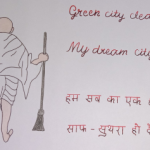 Green city clea
My dream city
हम सब का एक
साफ - सुथरा हो